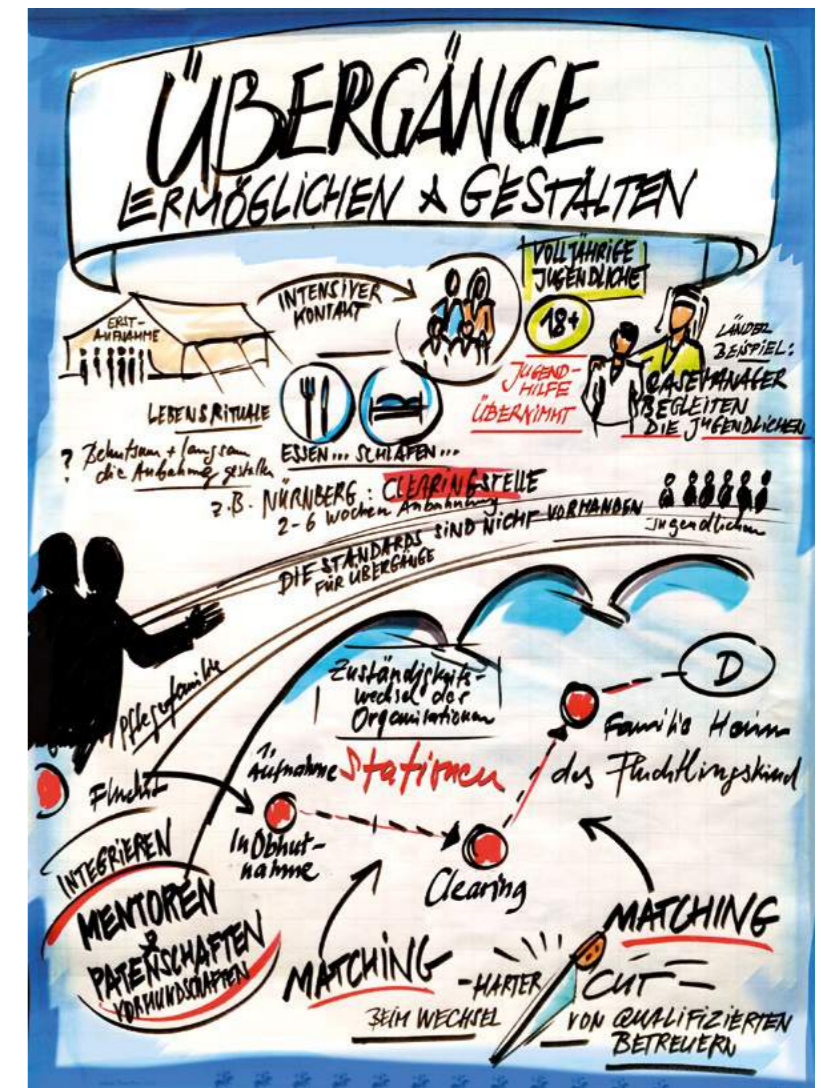 ÜBERGÄNGE
ERMÖGLICHEN & GESTALTEN
ERST-
AUFNAHME
INTENSIVER
KONTAKT
VOLLJÄHRIGE
JUGENDLICHE
18+
JUGEND-
HILFE
ÜBERNIMMT
LÄNDER
BEISPIEL:
CASEMANAGER
BEGLEITEN
DIE JUGENDLICHEN
LEBENSRITUALE
ESSEN... SCHLAFEN...
? Behutsam + langsam
die Anbahnung gestalten
z.B. NÜRNBERG: CLEARINGSTELLE
2-6 Wochen Anbahnung
Jugendlichen
DIE STANDARDS SIND NICHT VORHANDEN
FÜR ÜBERGÄNGE
Pflegefamilie
Zuständigkeits-
wechsel der
Organisationen
D
Familie Heim
des Fluchtlingskind
1.
Aufnahme
Stationen
Flucht
InObhut-
nahme
Clearing
INTEGRIEREN
MENTOREN
&
PATENSCHAFTEN
VORMUNDSCHAFTEN
MATCHING
BEIM WECHSEL
MATCHING
-HARTER CUT-
VON QUALIFIZIERTEN
BETREUERN